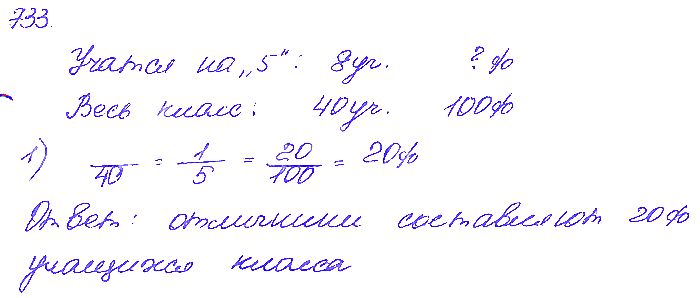 733.
Учатся на „5“: 8 уч. ? %
Весь класс: 40 уч. 100%
1) /40 = 1/5 = 20/100 = 20%
Ответ: отличники составляют 20%
учащихся класса